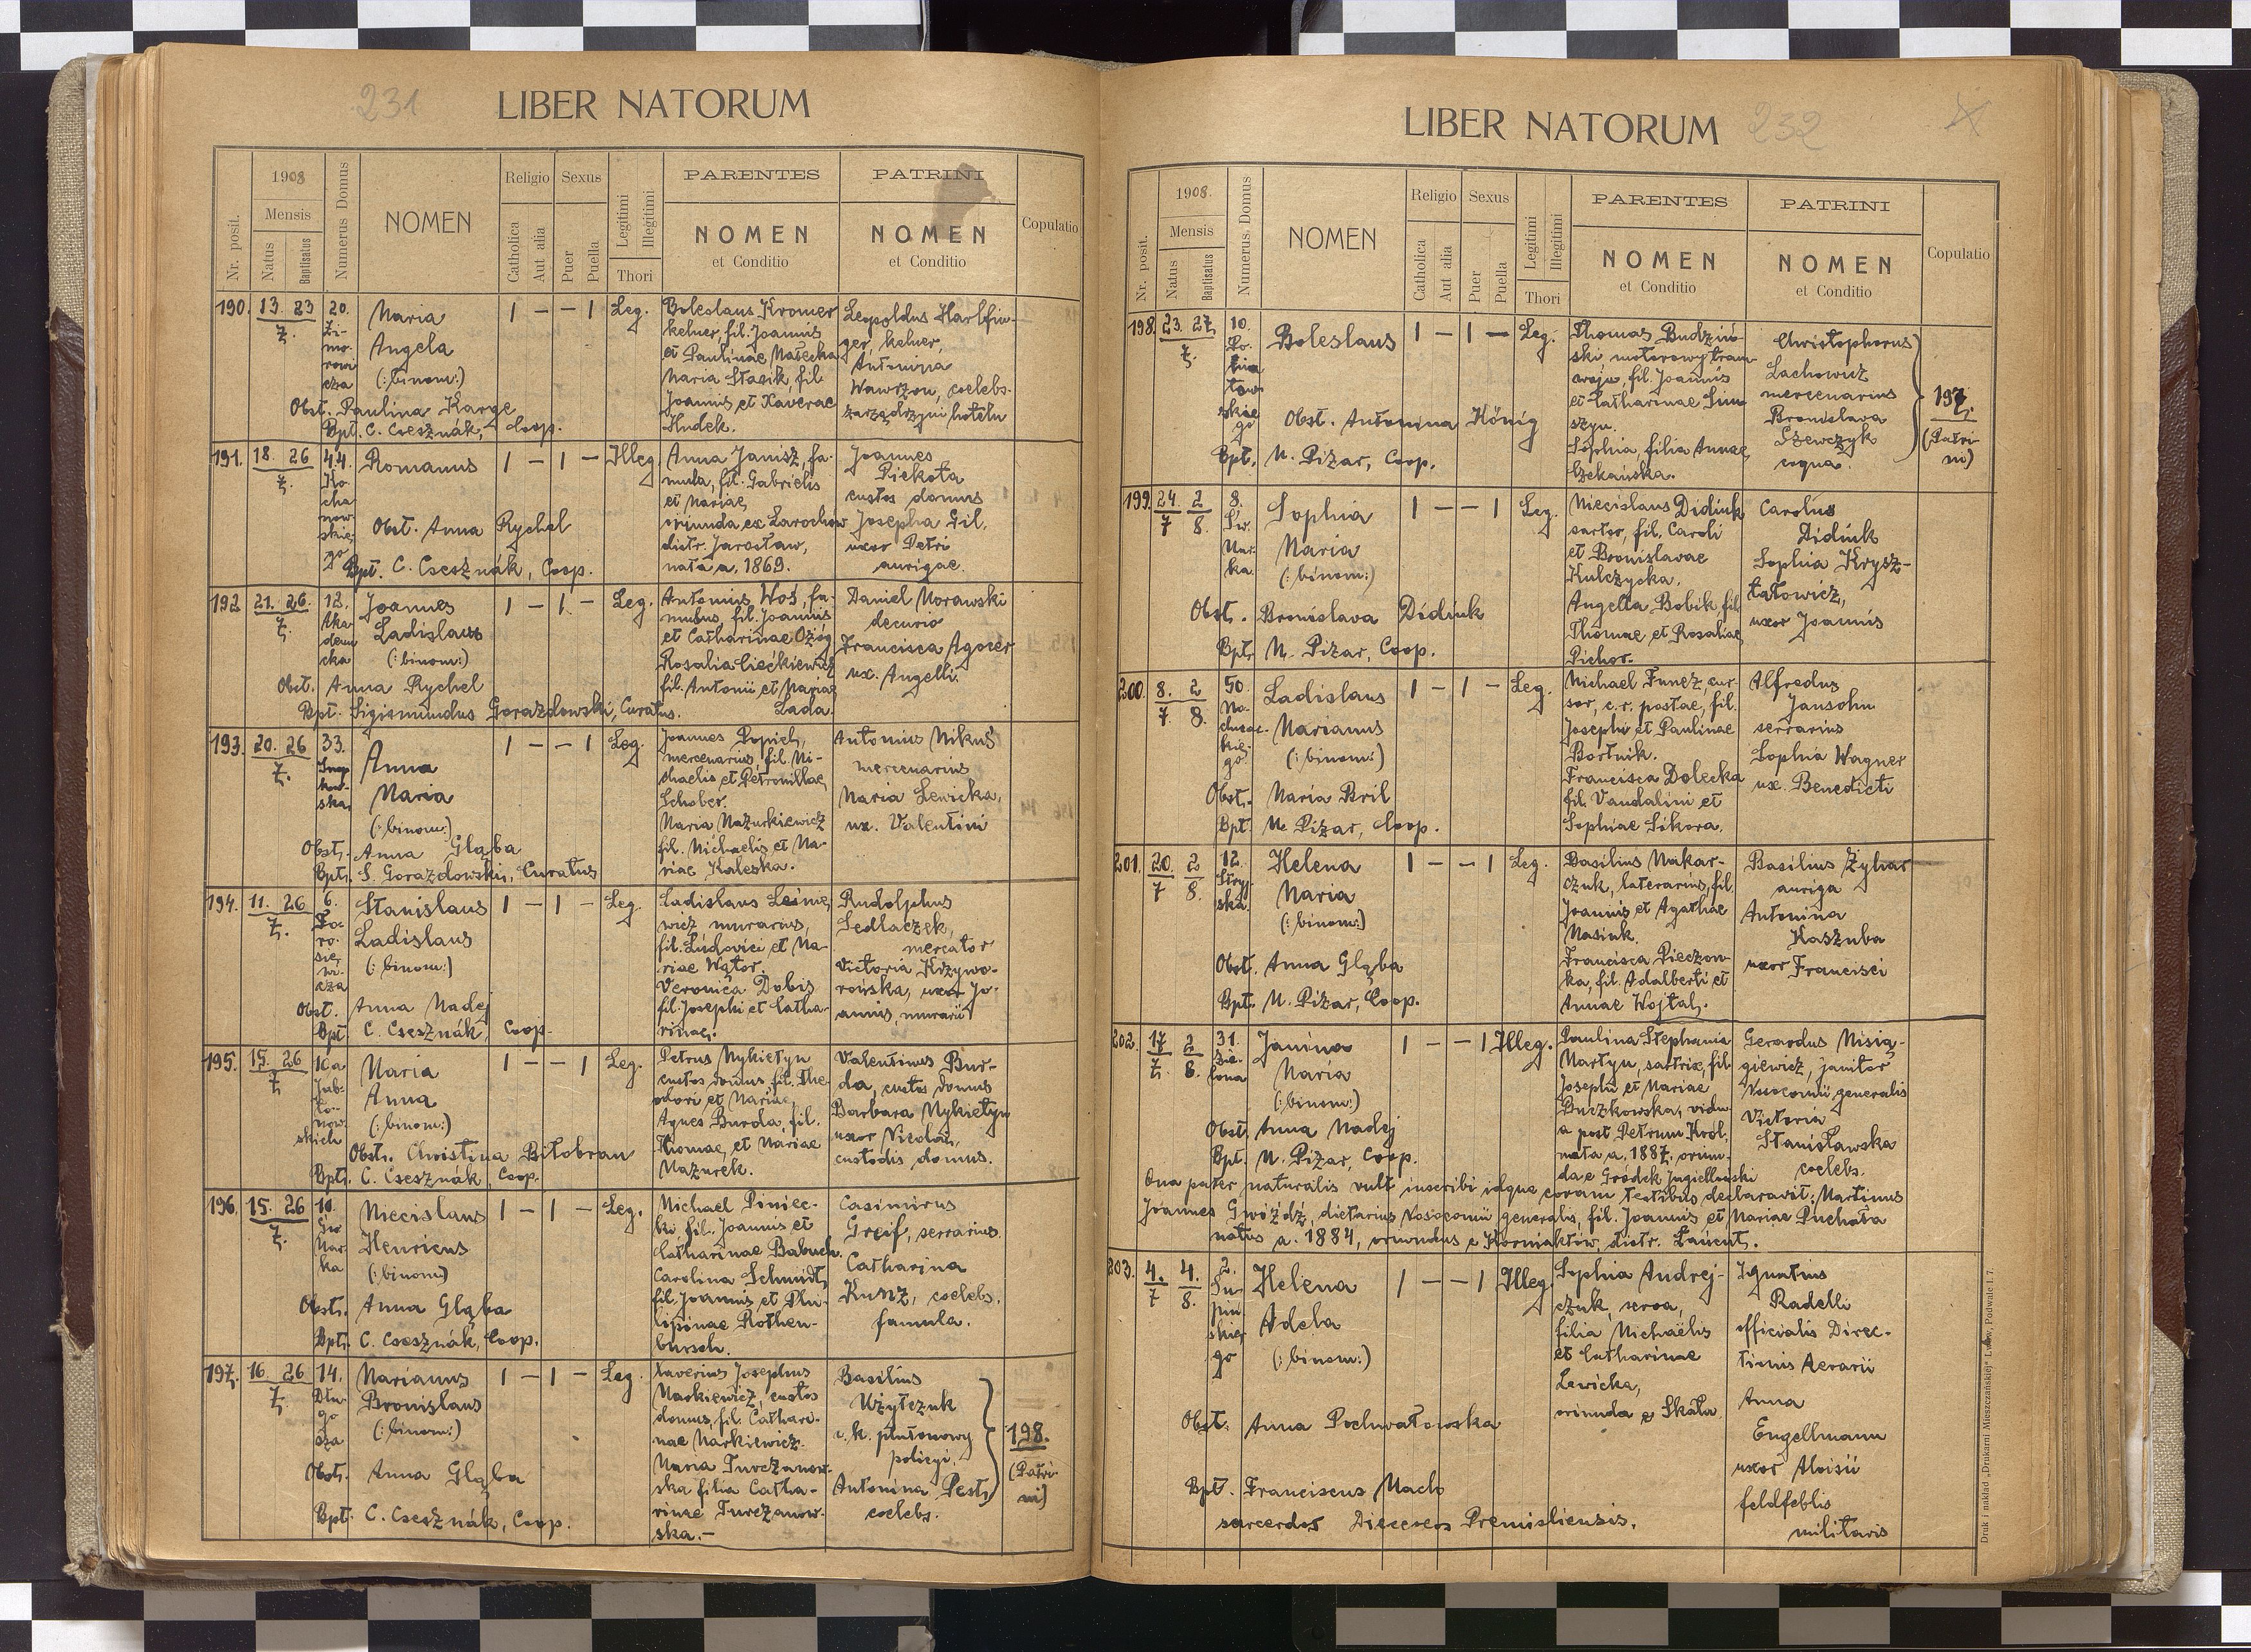 231
LIBER NATORUM
1908
Mensis
Nr. posit.
Natus
Baptisatus
Numerus Domus
NOMEN
Religio
Catholica
Aut alia
Sexus
Puer
Puella
Legitimi
Illegitimi
Thori
PARENTES
NOMEN
et Conditio
PATRINI
NOMEN
et Conditio
Copulatio
190. 13. 23 7. 20. Zi-
mo-
rowi
cza
Maria
Angela
(: binom:)
Obst. Paulina Karge
Bpt. C. Csesznák, Coop.
1 - - 1 Leg.
Boleslaus Kromer
kelner, fil. Joannis
et Paulinae Małecka
Maria Stasik, fil.
Joannis et Xaverae
Hudek.
Leopoldus Harlfin-
ger, kelner,
Antonina
Wawrzon, coelebs.
zarządczyni hotelu
191. 18. 26 7. 44.
Ko-
cha
now-
skie-
go
Romanus
Obst. Anna Rychel
Bpt. C. Csesznák, Coop.
1 - 1 - Illeg
Anna Janisz, fa-
mula, fil. Gabrielis
et Mariae,
oriunda ex Larochow
distr. Jarosław,
nata a. 1869.
Joannes
Piekota
custos domus
Josepha Gil,
uxor Petri
aurigae.
192 21. 26. 7. 12.
Aka
demi
cka
Joannes
Ladislaus
(: binom:)
Obst. Anna Rychel
Bpt. Sigismundus Gorazdowski, Curatus.
1 - 1 - Leg.
Antonius Woś, fa-
mulus, fil. Joannis
et Catharinae Ożóg
Rosalia Ciećkiewicz
fil. Antonii et Mariae
Lada.
Daniel Morawski
decurio
Francisca Agorer
ux. Angelli.
193. 20. 26 7. 33.
Snop
kow-
ska
Anna
Maria
(: binom:)
Obst. Anna Głąba
Bpt. S. Gorazdowski, Curatus
1 - - 1 Leg.
Joannes Popiel,
mercenarius, fil. Mi-
chaelis et Petronillae
Schober.
Maria Mazurkiewicz
fil. Michaelis et Ma-
riae Kaleska.
Antonius Mikuś
mercenarius
Maria Lewicka,
ux. Valentini
194. 11. 26 7. 6.
To-
ro-
sie-
wi-
cza
Stanislaus
Ladislaus
(: binom:)
Obst. Anna Madej
Bpt. C. Csesznák, Coop.
1 - 1 - Leg.
Ladislaus
wicz murarius,
fil. Ludovici et Ma-
riae Wątor.
Veronica Dobis
fil. Josephi et Catha-
rinae.
Rudolphus
Sedlaczek,
mercator
Victoria Krzywo-
rońska, uxor Jo-
annis, murarii
195. 15. 26 7 10a
Jab-
ło-
now-
skich
Maria
Anna
(: binom:)
Obst. Christina Bitobran
Bpt. C. Csesznák Coop.
1 - - 1 Leg.
Petrus Mykietyn
custos domus, fil. The-
odori et Mariae,
Agnes Burda, fil.
Thomae, et Mariae
Mazurek.
Valentinus Bur-
da, custos domus
Barbara Mykietyn
uxor Nicolai,
custodis domus.
196 15. 26 7. 10.
Św
Mar-
ka
Miecislaus
Henricus
(: binom:)
Obst. Anna Głąba
Bpt. C. Csesznák, Coop.
1 - 1 - Leg.
Michael Piniec-
ki, fil. Joannis et
Catharinae Babuch.
Carolina Schmidt,
fil. Joannis et Phi-
lipinae Rothen-
bursch.
Casimirus
Greif, serrarius
Catharina
Kunz, coelebs.
famula.
197. 16 26 7. 14.
Dłu-
go
sza
Marianus
Bronislaus
(: binom:)
Obst. Anna Głąba
Bpt. C. Csesznák, Coop.
1 - 1 - Leg.
Xaverius Josephus
Markiewicz, custos
domus, fil. Cathari-
nae Markiewicz.
Maria Turczanow-
ska filia Catha-
rinae Turczanow-
ska.-
Basilius
Użytczuk
c. k. plutonowy
policyi,
Antonina Pest,
coelebs.
198.
(Patri-
ni)
LIBER NATORUM
232
1908.
Mensis
Nr. posit.
Natus
Baptisatus
Numerus Domus
NOMEN
Religio
Catholica
Aut alia
Sexus
Puer
Puella
Legitimi
Illegitimi
Thori
PARENTES
NOMEN
et Conditio
PATRINI
NOMEN
et Conditio
Copulatio
198. 23. 27. 7. 10.
Po-
nia
tow-
skie
go
Boleslaus
Obst. Antonina König
Bpt. M. Piżar, Coop.
1 - 1 - Leg.
Thomas Budziń-
ski motorowy tram-
waju, fil. Joannis
et Catharinae Szu-
szyn.
Sophia, filia Annae
Czekańska.
Christophorus
Lachowicz
mercenarius
Bronislava
Szewczyk
coqua.
197.
(Patri-
ni)
199. 24. 2 7 8. 8.
Św.
Mar-
ka.
Sophia
Maria
(: binom:)
Obst. Bronislava Didiuk
Bpt. M. Piżar, Coop.
1 - - 1 Leg.
Miecislaus Didiuk
sartor, fil. Caroli
et Bronislavae
Kulczycka.
Angella Bobik, fil
Thomae et Rosaliae
Pichor.
Carolus
Didiuk
Sophia Krysz-
tałowicz,
uxor Joannis
200. 8. 2 7. 8. 50.
Mo-
chnac-
kie-
go
Ladislaus
Marianus
(: binom:)
Obst. Maria Bril
Bpt. M. Piżar, Coop.
1 - 1 - Leg.
Michael Funcz, cur-
sor, c. r. postae, fil.
Josephi et Paulinae
Bortnik.
Francisca Dolecka
fil. Vandalini et
Sophiae Sikora.
Alfredus
Jansohn
serrarius
Sophia Wagner
ux. Benedicti
201. 20. 2 7 8. 12.
Stryj
ska.
Helena
Maria
(: binom:)
Obst. Anna Głąba
Bpt. M. Piżar, Coop.
1 - - 1 Leg.
Basilius Makar-
czuk, laterarius, fil.
Joannis et Agathae
Masiuk.
Francisca Pieczon-
ka, fil. Adalberti et
Annae Wojtal.
Basilius Żyhar
auriga
Antonina
Kaszuba
uxor Francisci
202. 17 2 7. 8. 31.
Zie-
lona
Janina
Maria
(: binom:)
Obst. Anna Madej
Bpt. M. Piżar, Coop.
1 - - 1 Illeg.
Paulina Stephania
Martyn, sartrix, fil
Josephi et Mariae
Buczkowska, vidu-
a post Petrum Król.
nata a. 1887. oriun-
da e Gródek Jagielloński
Gerardus Misią-
giewicz, janitor
Nosocomii generalis
Victoria
Stanisławska
coelebs.
Qua pater naturalis vult inscribi idque coram testibus declaravit: Martinus
Joannes Gwóźdź, dietarius Nosocomii generalis, fil. Joannis et Mariae Puchała
natus a. 1884, oriundus e Korniaktów, distr. Łańcut.
203. 4. 4. 7 8. 2.
Su-
piń
skie
go
Helena
Adela
(: binom:)
Obst. Anna Pochwałowska
Bpt. Franciscus Mach
sacerdos Dieceseos Premisliensis.
1 - - 1 Illeg
Sophia Andrej-
czuk, serva,
filia Michaëlis
et Catharinae
Lewicka,
oriunda e Skała
Ignatius
Radelli
officialis Direc-
tionis Aerarii
Anna
Engellmann
uxor Aloisii
feldfeblis
militaris
Druk i nakład „Drukarni Mieszczańskiej" Lwów, Podwale l. 7.